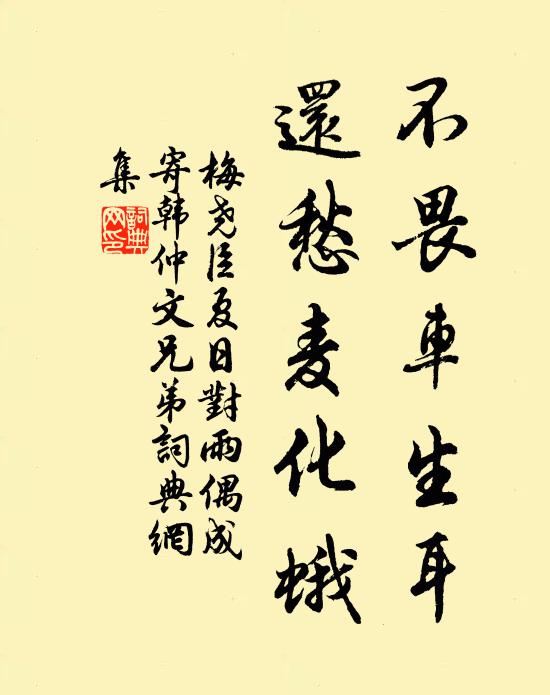 不畏車生耳
還愁麦化蛾
梅尧臣夏日對雨偶成
寄韩仲文兄弟詞典網
集
詞典
网印